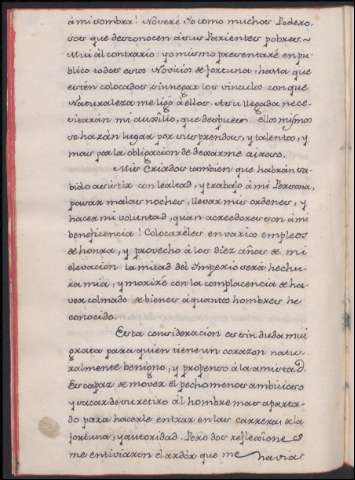 à mi sombra! No seré Yo como muchos Podero-
sos que desconocen à sus Parientes pobres.~
Mui al contrario: yo mismo presentaré en pu-
blico todos estos Novicios de fortuna, hasta que
estén colocados sin negar los vinculos con que
Naturaleza me ligó à ellos. A su llegada nece-
sitarán mi auxîlio, que despues ellos mysmos
se harán lugar por sus prendas, y talentos, y
mas por la obligacion de dexarme airoso.
Mis Criados tambien que habrán sa-
bido asistir con lealtad, y trabajo à mi Persona,
pasar malas noches, llevar mis ordenes, y
hacer mi voluntad, quan acreedores son à mi
beneficencia! Colocarélos en varios empleos
de honra, y provecho à los diez años de mi
elevacion la mitad del Imperio será hechu-
ra mia, y moriré con la complacencia de ha-
ver colmado de bienes à quantos hombres he
conocido.
Esta consideracion es sin duda mui
grata para quien tiene un corazon natu-
ralmente benigno, y propenso à la amistad.
Es capaz de mover el pecho menos ambicioso
y sacar de su retiro al hombre mas aparta-
do para hacerle entrar en las carreras de la
fortuna, y autoridad. Pero dos reflexîones
me entiviaron el ardor que me havia